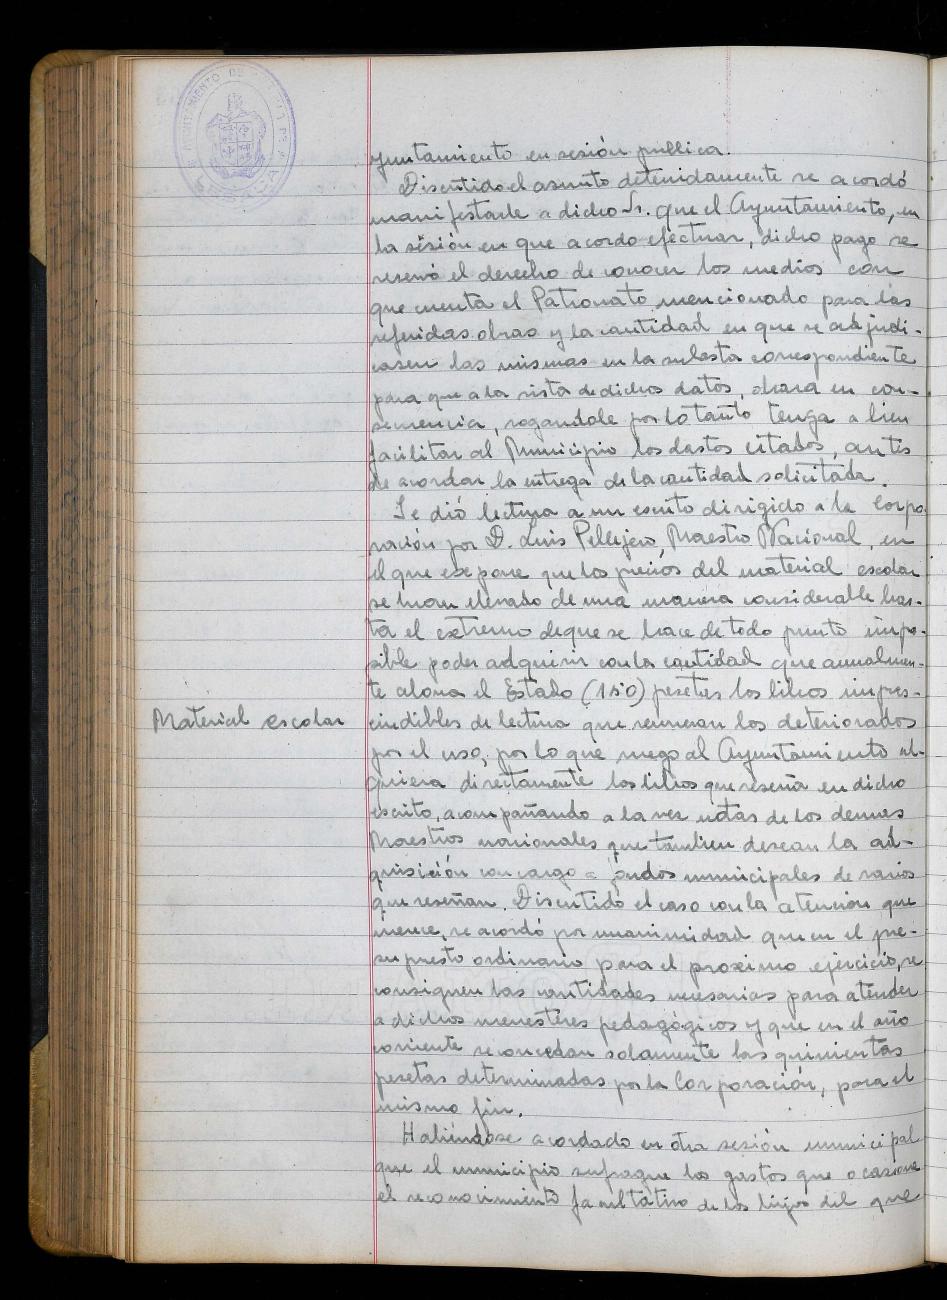 AYUNTAMIENTO DE
yuntamiento en sesión pública.
Discutido el asunto detenidamente se acordó
manifestarle a dicho Sr. que el Ayuntamiento, en
la sesión en que acordo efectuar, dicho pago se
reservó el derecho de conocer los medios con
que cuenta el Patronato mencionado para las
referidas obras y la cantidad en que se adjudi-
casen las mismas en la subasta correspondiente
para que a la vista de dichos datos, obrara en con-
secuencia, rogandole por lo tanto tenga a bien
facilitar al Municipio los datos citados, antes
de acordar la entrega de la cantidad solicitada.
Se dió lectura a un escrito dirigido a la Corpo-
ración por D. Luis Pellejero, Maestro Nacional, en
el que expone que los precios del material escolar
se han elevado de una manera considerable has-
ta el extremo de que se hace de todo punto impo-
sible poder adquirir con la cantidad que anualmen-
te abona el Estado (150) pesetas los libros impres-
Material escolar
cindibles de lectura que renueven los deteriorados
por el uso, por lo que ruego al Ayuntamiento ad-
quiera directamente los libros que reseña en dicho
escrito, acompañando a la vez notas de los demas
Maestros nacionales que tambien desean la ad-
quisición con cargo a fondos municipales de varios
que reseñan. Discutido el caso con la atención que
merece, se acordó por unanimidad que en el pre-
supuesto ordinario para el proximo ejercicio, se
consignen las cantidades necesarias para atender
a dichos menesteres pedagógicos y que en el año
corriente se concedan solamente las quinientas
pesetas determinadas por la Corporación, para el
mismo fin.
Habiéndose acordado en otra sesión municipal
que el municipio sufrague los gastos que ocasione
el reconocimiento facultativo de los hijos del que